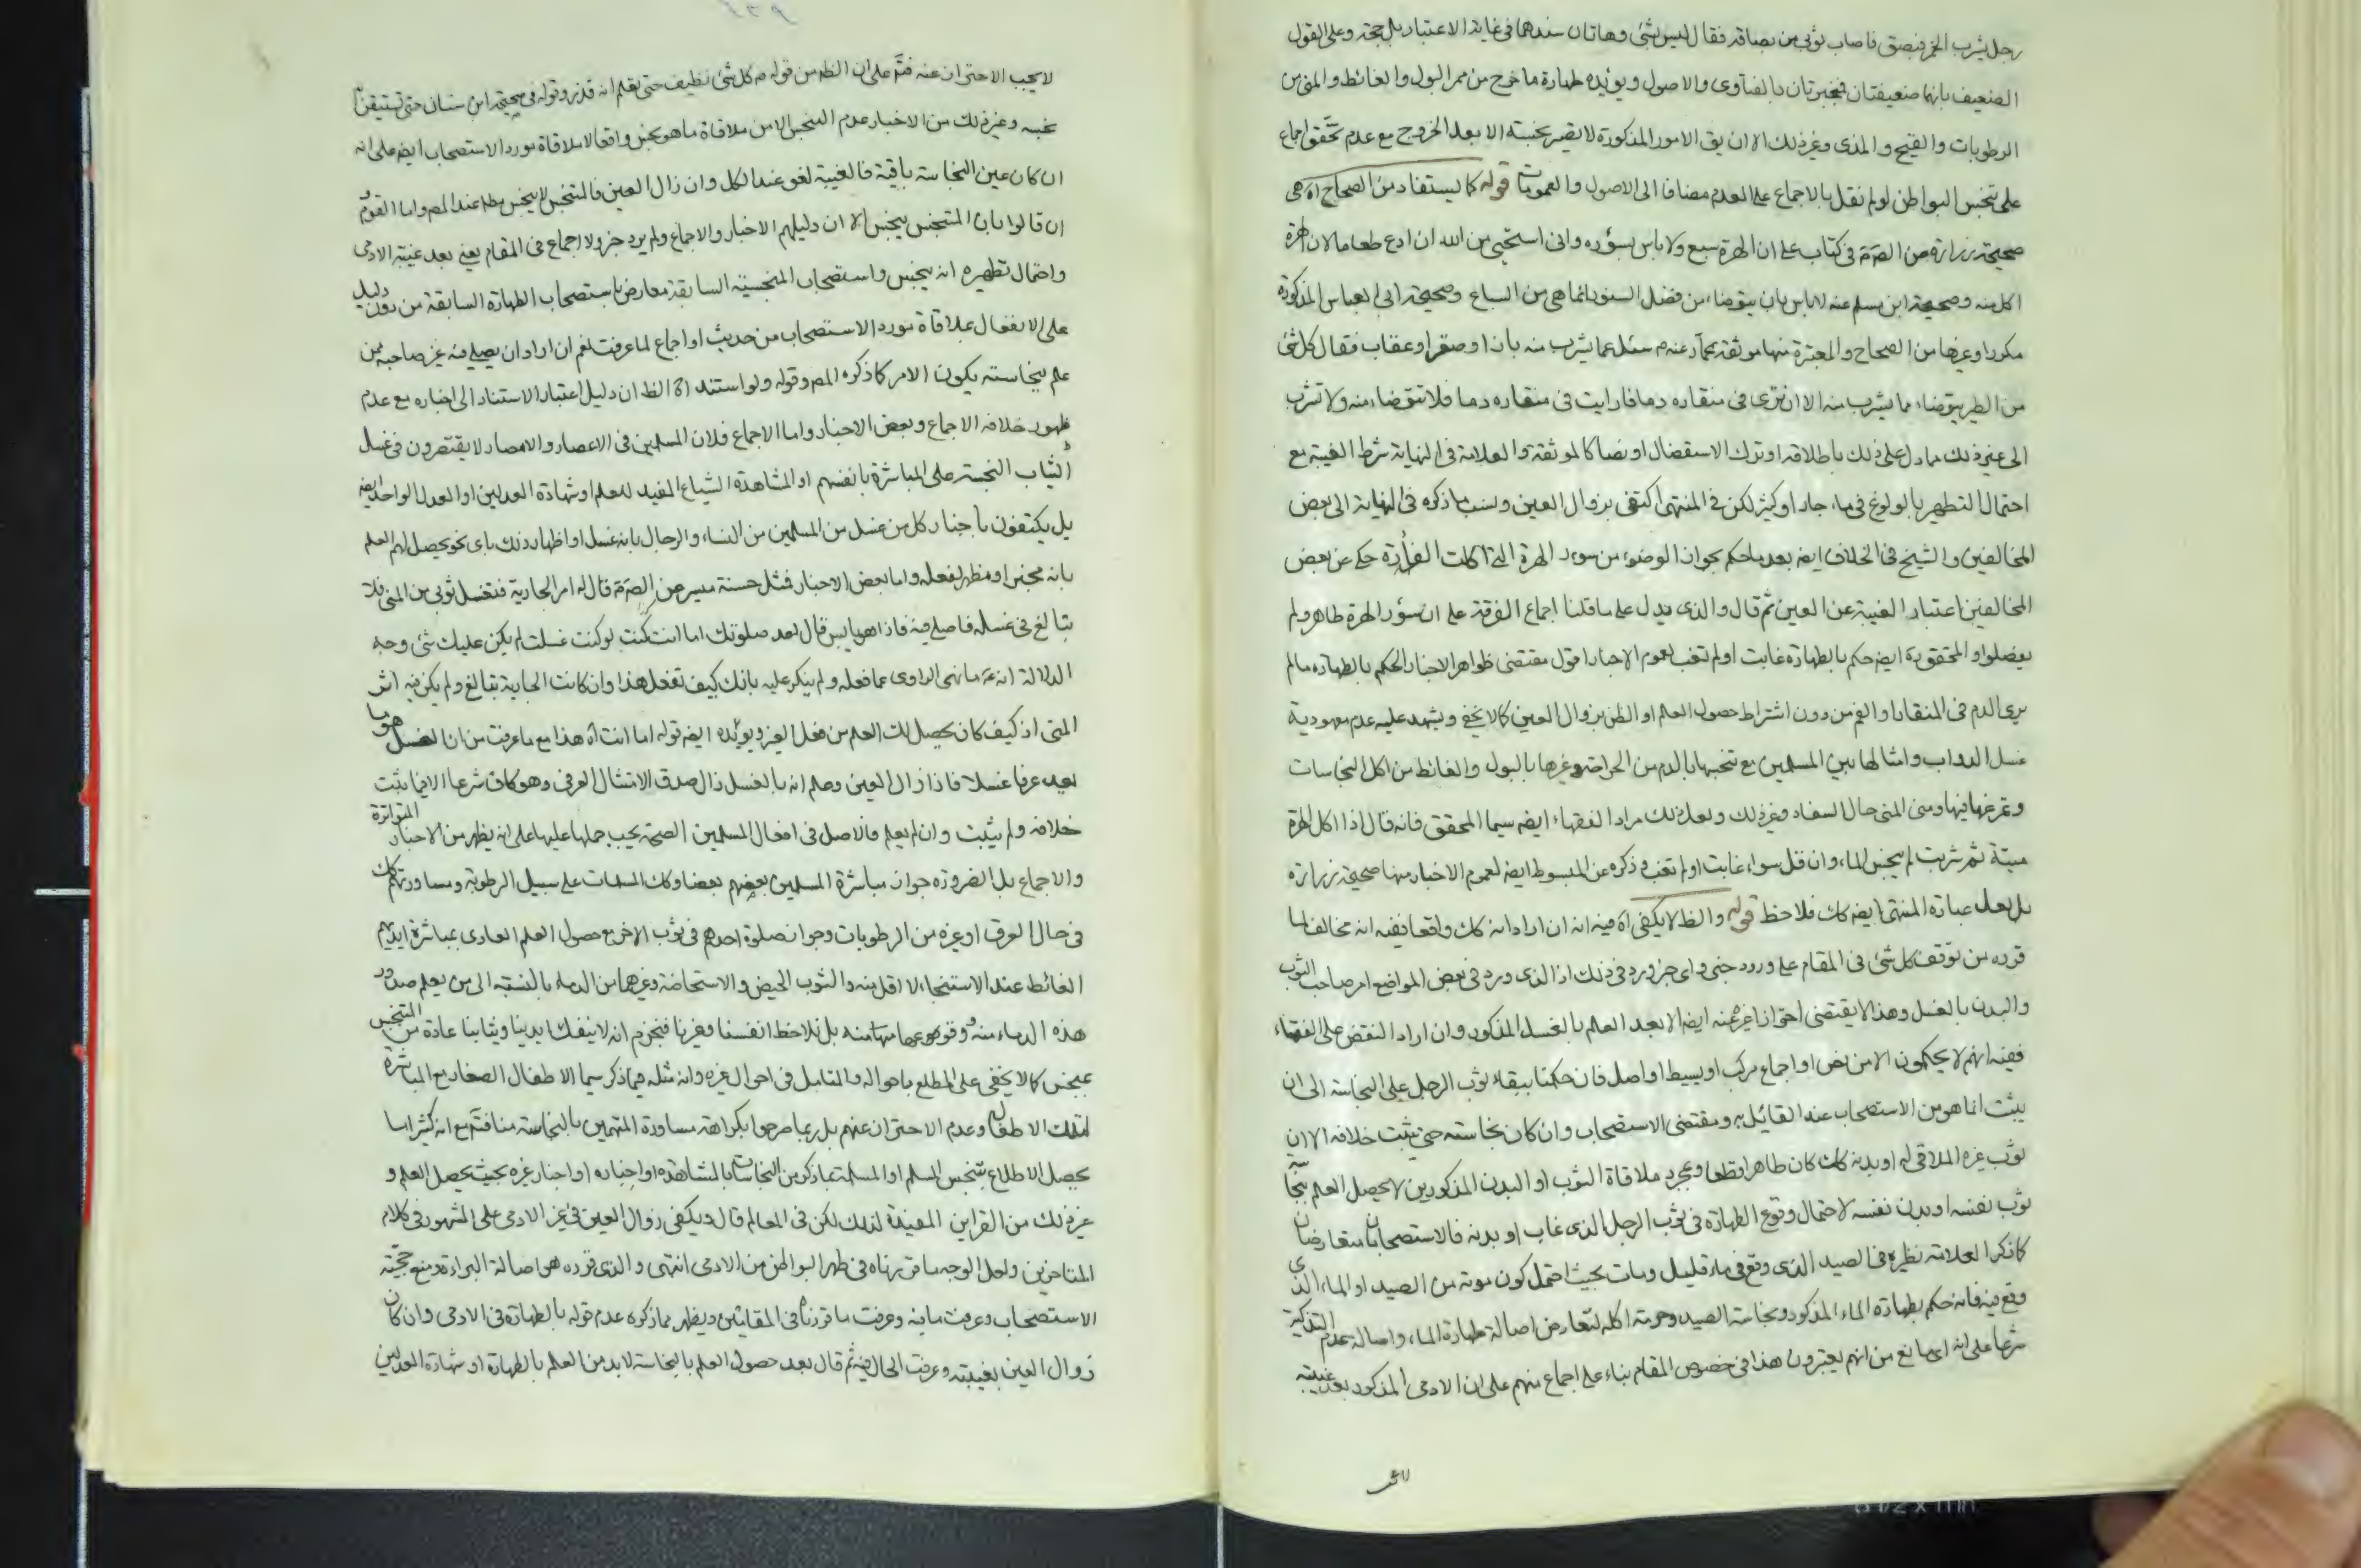 رجل يشرب الخمر فبصق فاصاب ثوبى من بصاقه فقال ليس بشئ وهاتان سندهما فى غاية الاعتبار بل حجة وعلى القول
الضعيف بانهما ضعيفتان فمنجبرتان بالفتاوى والاصول ويؤيده طهارة ما خرج من ممر البول والغائط والمنى من
الرطوبات والقيح والمذى وغير ذلك الا ان يق الامور المذكورة لا يصير نجسة الا بعد الخروج مع عدم تحقق اجماع
على تنجس البواطن لو لم نقل بالاجماع على العدم مضافا الى الاصول والعمومات قوله كما يستفاد من الصحاح اه هى
صحيحة زرارة عن الصّ ع فى كتاب على ان الهرة سبع ولا باس بسؤره وانى استحيى من الله ان ادع طعاما لان الهرة
اكل منه وصحيحة ابن مسلم عنه لا باس بان يتوضاء من فضل السنور انما هى من السباع وصحيحة ابى العباس المذكورة
مكررا وغيرها من الصحاح والمعتبرة منها موثقة عمار عنه ع سئل عما يشرب منه باز او صقر او عقاب فقال كل شئ
من الطير يتوضاء مما يشرب منه الا ان ترى فى منقاره دما فان رايت فى منقاره دما فلا تتوضاء منه ولا تشرب
الى غير ذلك مما دل على ذلك باطلاقه او ترك الاستفصال او نصا كالموثقة والعلامة فى النهاية شرط الغيبة مع
احتمال التطهير بالولوغ فى ماء جار او كثير لكن فى المنتهى اكتفى بزوال العين ونسب ما ذكره فى النهاية الى بعض
المخالفين والشيخ فى الخلاف ايضه بعد ما حكم بجواز الوضوء من سؤر الهرة التى اكلت الفارة حكى عن بعض
المخالفين اعتبار الغيبة عن العين ثم قال والذى يدل على ما قلنا اجماع الفرقة على ان سؤر الهرة طاهر ولم
يفصلوا والمحقق ره ايضه حكم بالطهارة غابت او لم تغب لعموم الاخبار اقول مقتضى ظواهر الاخبار الحكم بالطهاره ما لم
يرى الدم فى المنقار او الفم من دون اشتراط حصول العلم او الظن بزوال العين كما لا يخفى ويشهد عليه عدم معهودية
غسل الدواب وامثالها بين المسلمين مع تنجسها بالدم من الجراحة وغيرها بالبول والغائط من اكل النجاسات
وتمرغها فيها ومنى المنى حال السفاد وغير ذلك ولعل ذلك مراد الفقهاء ايضه سيما المحقق فانه قال اذا اكل الهرة
ميتة ثم شربت لم ينجس الماء وان قل سواء غابت او لم تغب وذكره عن المبسوط ايضه لعموم الاخبار منها صحيحة زرارة
بل لعل عبارة المنتهى ايضه كك فلاحظ قوله والظ لا يكفى اه فيه انه ان اراد انه كك واقعا ففيه انه مخالف لما
قرره من توقف كل شئ فى المقام على ورود خبر واى خبر ورد فى ذلك اذ الذى ورد فى بعض المواضع امر صاحب الثوب
والبدن بالغسل وهذا لا يقتضى احتراز غيره عنه ايضه الا بعد العلم بالغسل المذكور وان اراد النقض على الفقهاء
ففيه انهم لا يحكمون الا من نص او اجماع مركب او بسيط او اصل فان حكمنا ببقاء ثوب الرجل على النجاسة الى ان
يثبت انما هو من الاستصحاب عند القائل به ومقتضى الاستصحاب وان كان نجاسته حتى يثبت خلافه الا ان
ثوب غيره الملاقى له او بدنه كك كان طاهرا قطعا وبمجرد ملاقاة الثوب او البدن المذكورين لا يحصل العلم بنجاسة
ثوب نفسه او بدن نفسه لاحتمال وقوع الطهارة فى ثوب الرجل الذى غاب او بدنه فالاستصحابان متعارضان
كما ذكر العلامة نظيره فى الصيد الذى وقع فى ماء قليل ومات بحيث احتمل كون موته من الصيد او الماء الذى
وقع فيه فانه حكم بطهارة الماء المذكور ونجاسة الصيد وحرمة اكله لتعارض اصالة طهارة الماء واصالة عدم التذكية
شرعا على انه اى مانع من انهم يعتبرون هذا فى خصوص المقام بناء على اجماع منهم على ان الادمى المذكور بعد غيبته
لا يجب الاحتراز عنه فتم على ان الظ من قوله ع كل شئ نظيف حتى تعلم انه قذر وقوله فى صحيحة ابن سنان حتى تستيقن انه
نجسه وغير ذلك من الاخبار عدم التنجس الا من ملاقاة ما هو نجس واقعا لا ملاقاة مورد الاستصحاب ايضه على انه
ان كان عين النجاسة باقية فالغيبة لغو عند الكل وان زال العين فالمتنجس لا ينجس مطه عند المصه واما القوم
ان قالوا بان المتنجس ينجس الا ان دليلهم الاخبار والاجماع ولم يرد خبر ولا اجماع فى المقام يعنى بعد غيبة الادمى
واحتمال تطهيره انه ينجس واستصحاب المنجسية السابقة معارض باستصحاب الطهارة السابقة من دون دليل
على الانفعال بملاقاة مورد الاستصحاب من حديث او اجماع لما عرفت نعم ان اراد ان يصلى فيه غير صاحبه ممن
علم بنجاسته يكون الامر كما ذكره المصه وقوله ولو استند اه الظ ان دليل اعتبار الاستناد الى اخباره مع عدم
ظهور خلافه الاجماع وبعض الاخبار واما الاجماع فلان المسلمين فى الاعصار والامصار لا يقتصرون فى غسل
الثياب النجسة على المباشرة بانفسهم او المشاهدة او الشياع المفيد للعلم او شهادة العدلين او العدل الواحد ايضه
بل يكتفون باخبار كل من غسل من المسلمين من النساء والرجال بانه غسل او اظهار ذلك باى نحو يحصل لهم العلم
بانه مخبر او مظهر لفعله واما بعض الاخبار فمثل حسنة ميسر عن الصّ ع قال له امر الجارية فتغسل ثوبى من المنى فلا
تبالغ فى غسله فاصلى فيه فاذا هو يابس قال اعد صلوتك اما انك كنت لو كنت غسلت لم يكن عليك شئ وجه
الدلالة انه ع ما نهى الراوى عما فعله ولم ينكر عليه بانك كيف تفعل هذا وان كانت الجارية تبالغ ولم يكن فيه اثر
المنى اذ كيف كان يحصل لك العلم من فعل الغير ويؤيده ايضه قوله اما انت اه هذا مع ما عرفت من ان الغسل هو ما
يعد عرفا غسلا فاذا زال العين وعلم انه بالغسل زال صدق الامتثال العرفى وهو كاف شرعا الا فيما ثبت
خلافه ولم يثبت وان لم يعلم فالاصل فى افعال المسلمين الصحة يجب حملها عليها على انه يظهر من الاخبار المتواترة
والاجماع بل الضرورة جواز مباشرة المسلمين بعضهم بعضا وكك المسلمات على سبيل الرطوبة ومساورتهم كك
فى حال العرق او غيره من الرطوبات وجواز صلوة احدهم فى ثوب الاخر مع حصول العلم العادى بمباشرة ايديهم
الغائط عند الاستنجاء لا اقل منه والثوب الحيض والاستحاضة وغيرهما من الدماء بالنسبة الى من يعلم صدور
هذه الدماء منه ووقوعها منها منه بل نلاحظ انفسنا وغيرنا فنجزم انه لا ينفك ايدينا وثيابنا عادة من التنجس
بنجس كما لا يخفى على المطلع باحواله والمتامل فى احوال غيره وانه مثله فيما ذكر سيما الاطفال الصغار مع المباشرة
لتلك الاطفال وعدم الاحتراز عنهم بل ربما صرحوا بكراهة مساورة المتهمين بالنجاسة منا فتم مع انه كثيرا ما
يحصل الاطلاع بتنجس المسلم او المسلمة بما ذكر من النجاسات بالمشاهدة او اخباره او اخبار غيره بحيث يحصل العلم و
غير ذلك من القراين المفيدة لذلك لكن فى المعالم قال ويكفى زوال العين فى غير الادمى على المشهور فى كلام
المتاخرين ولعل الوجه ما قررناه فى طهر البواطن من الادمى انتهى والذى قرره هو اصالة البراءة ومنع حجية
الاستصحاب وعرفت ما فيه وعرفت ما قررنا فى المقامين ويظهر مما ذكره عدم قوله بالطهارة فى الادمى وان كان
زوال العين بغيبته وعرفت الحال فيه ثم قال بعد حصول العلم بالنجاسة لا بد من العلم بالطهارة او شهادة العدلين